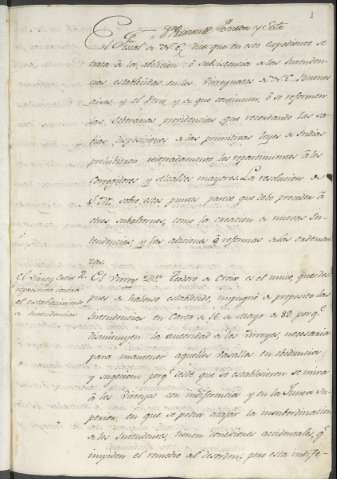 1
El Fiscal de N. E. dice que en este expediente se
trata de la abolicion ó subsistencia de las Intendencias
establecidas en los Virreynatos de N. E. Buenos
aires y el Perú, y de que continuen, ó se reformen
las Soberanas providencias que recordando las sabias
disposiciones de las primitivas leyes de Indias
prohibieron los repartimientos á los
Corregidores y Alcaldes mayores. La resolucion de
S. M. sobre estos puntos parece que debe preceder á
otros subalternos, como la creacion de nuevas Intendencias
y las adiciones ó reformas de las ordenanzas.
El Virrey Croix
representó contra
el establecimiento
de Intendencias
El Virrey Dn. Teodoro de Croix es el unico que despues
de haberse establecido, impugnó de proposito las
Intendencias en Carta de 16 de Mayo de 89 porq.e
disminuyen la autoridad de los Virreyes, necesaria
para mantener aquellos vasallos en obediencia;
y sugetos: porq.e desde que se establecieron se mira
á los Virreyes con indiferencia y en la Junta Superior,
en que se podia atajar la insubordinacion
de los Intendentes, tienen conexiones accidentales, q.e
impiden el remedio al desorden, pues esta indife-